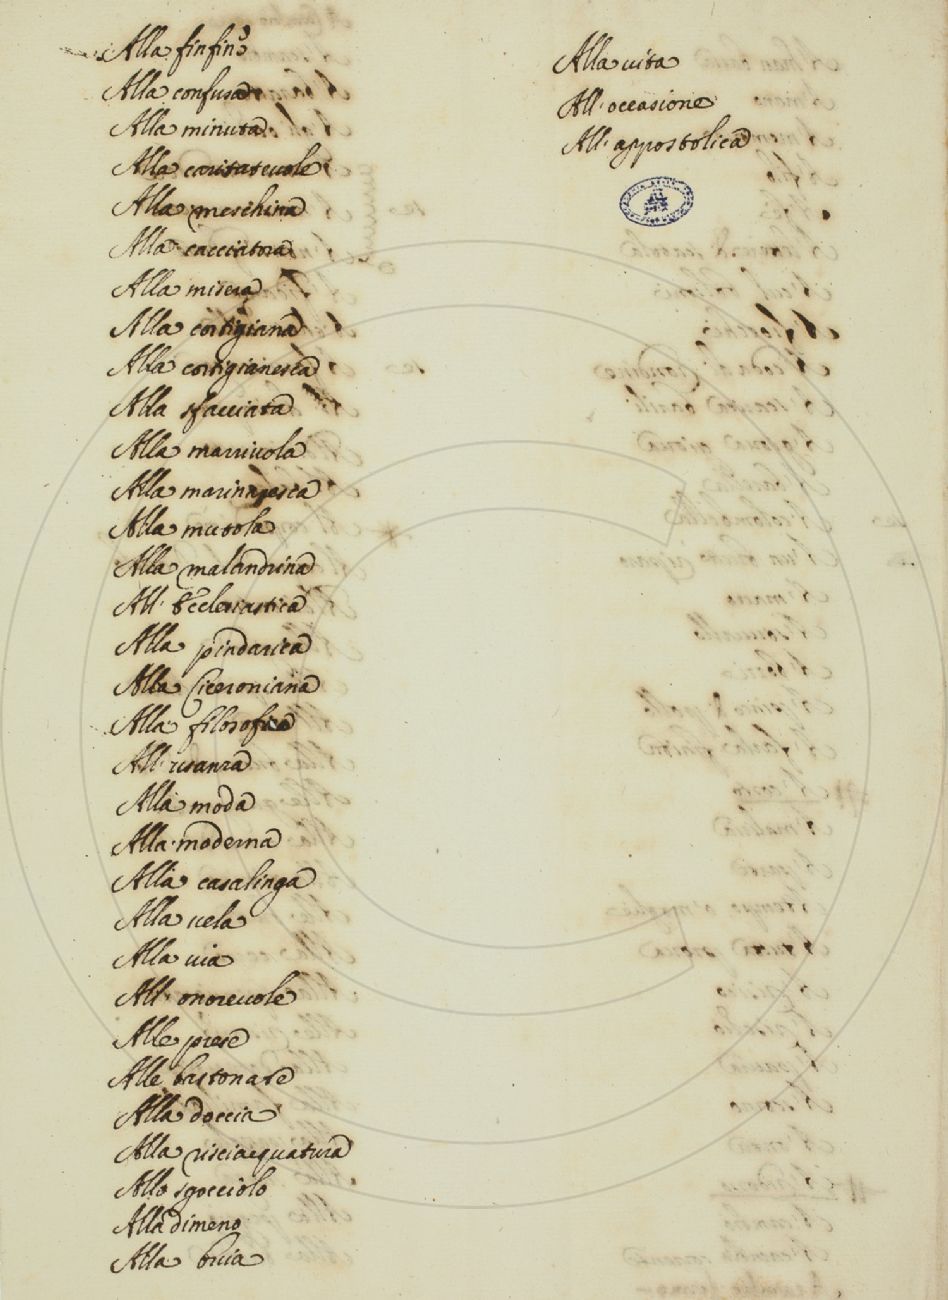 Alla finfine
Alla confusa
Alla minuta
Alla caritatevole
Alla meschina
Alla cacciatora
Alla misera
Alla cortigiana
Alla cortigianesca
Alla sfacciata
Alla marrivola
Alla marinaresca
Alla mutola
Alla malandrina
All' Ecclesiastica
Alla pindarica
Alla Ciceroniana
Alla filosofica
All' usanza
Alla moda
Alla moderna
Alla casalinga
Alla vela
Alla via
All' onorevole
Alle prese
Alle bastonate
Alla doccia
Alla risciacquatura
Allo sgocciolo
Alla dimeno
Alla bru̇ia
Alla vita
All' occasione
All' appostolica